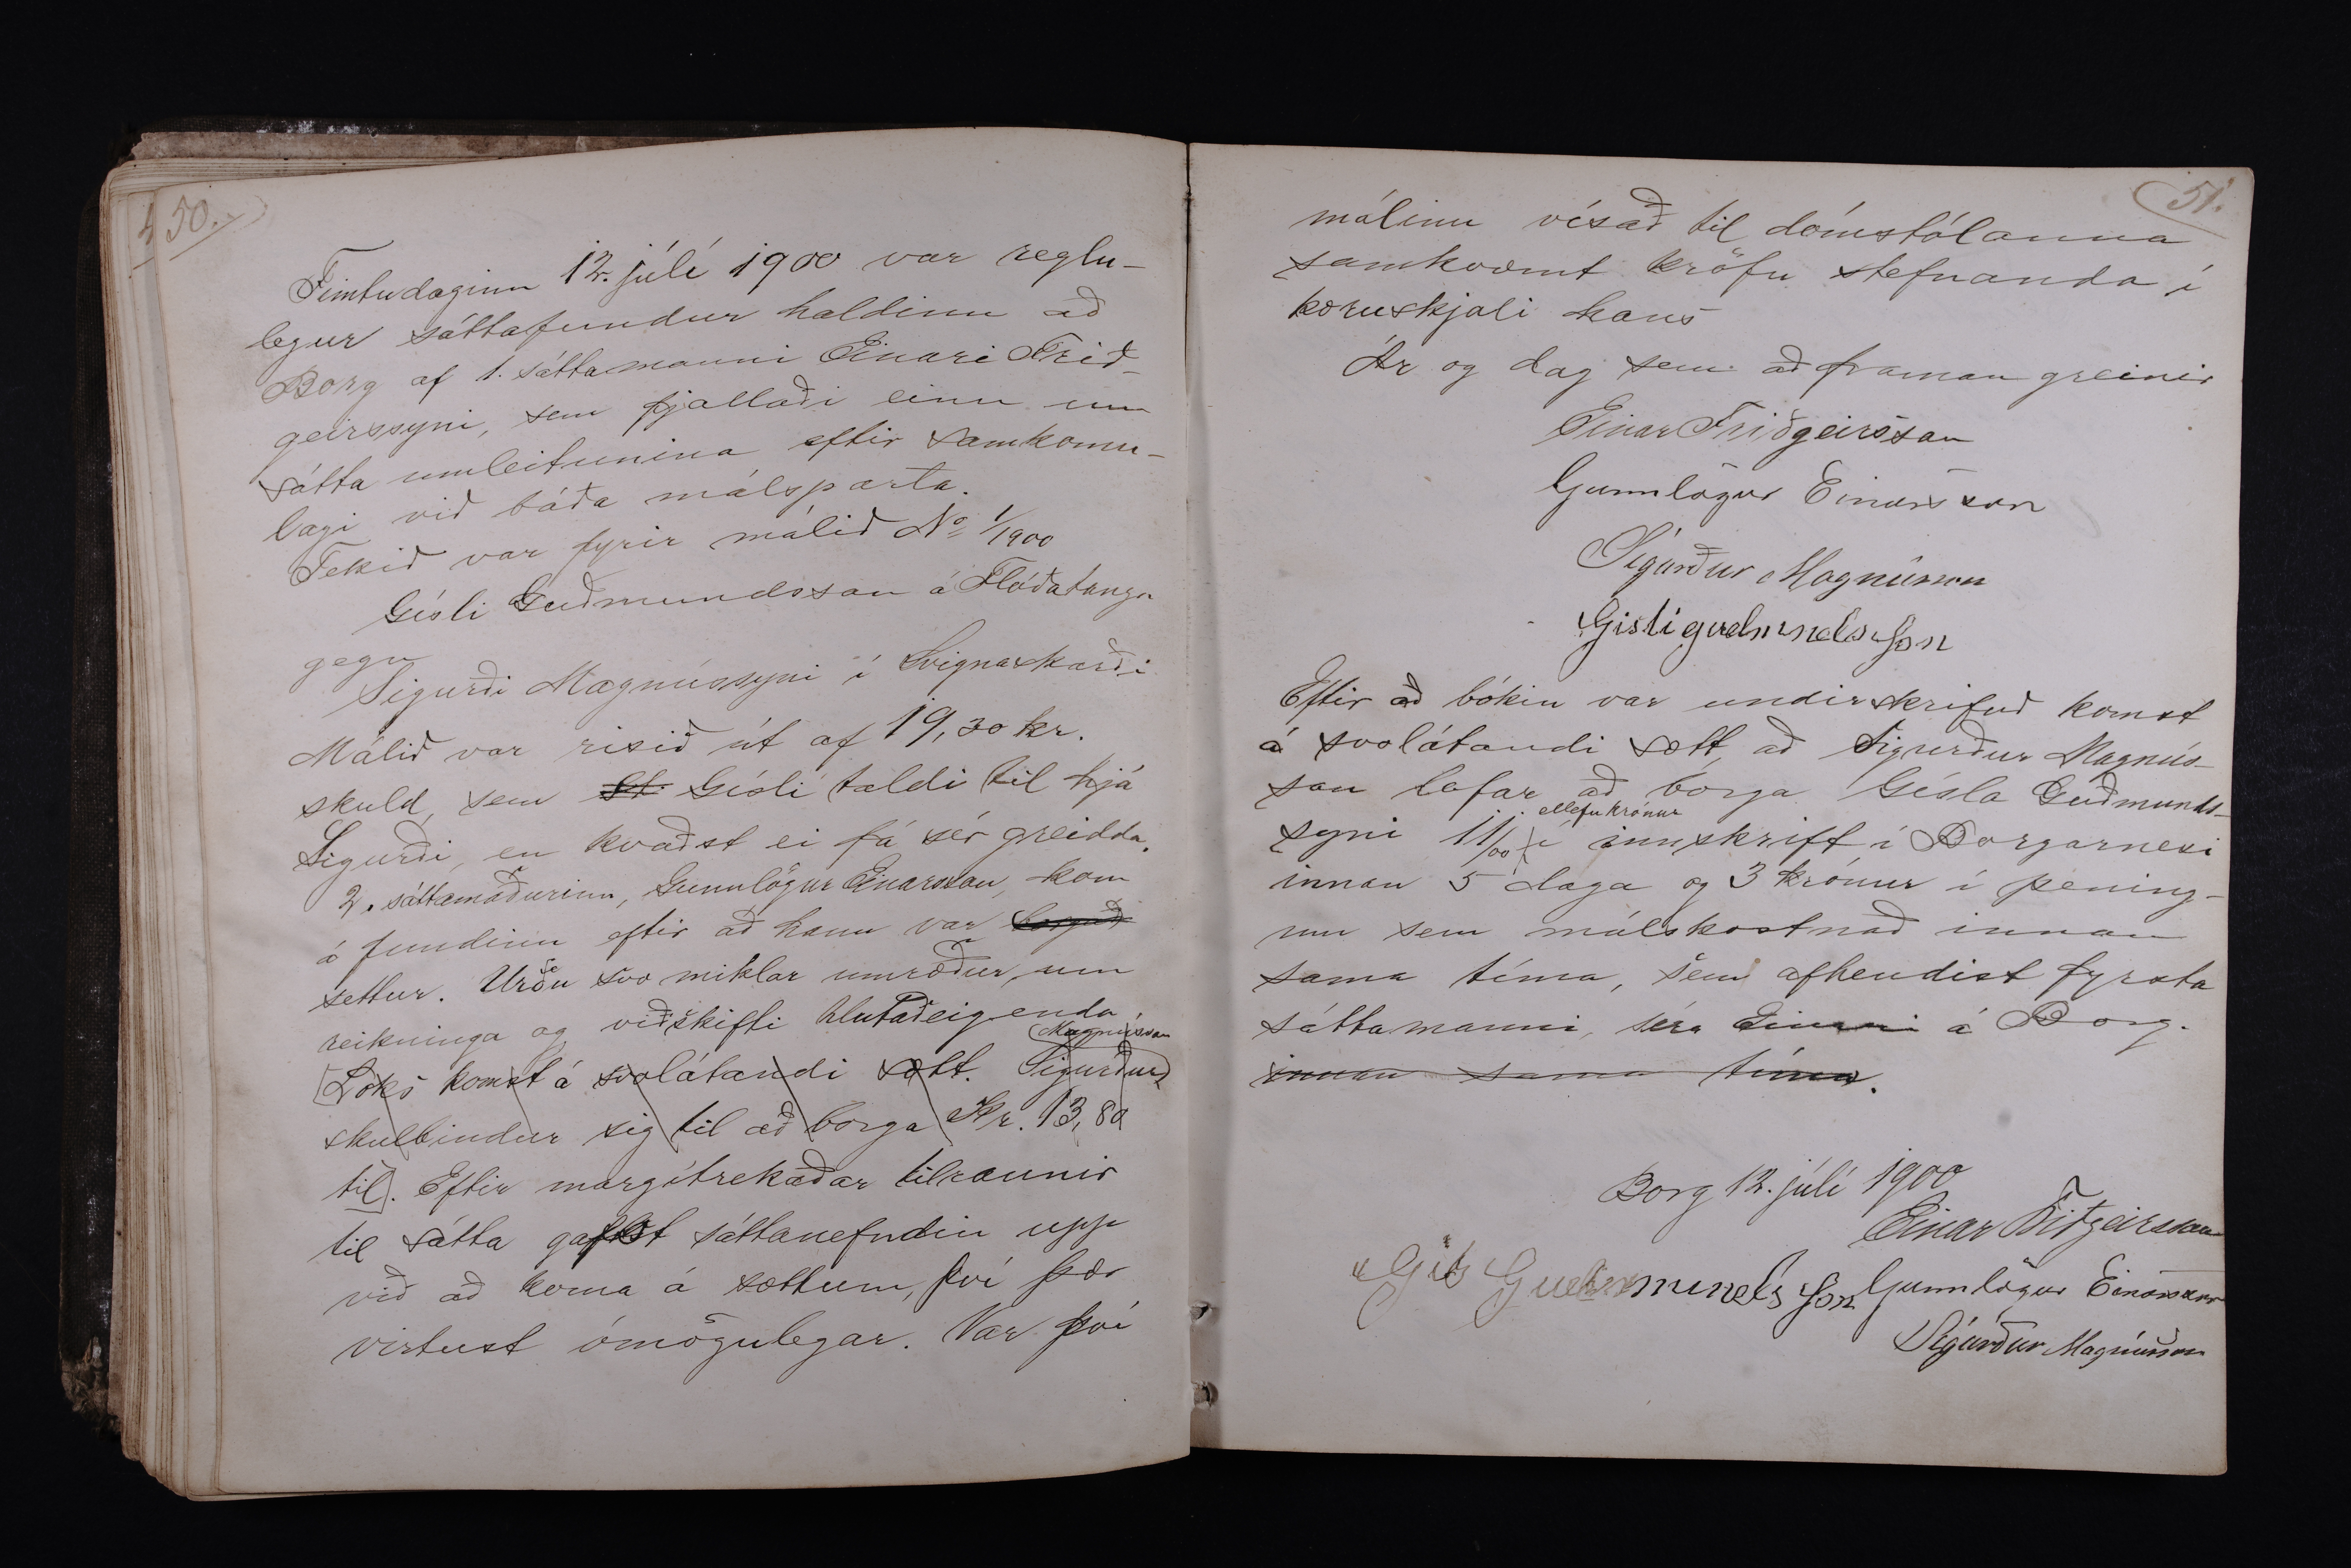 50.
Fimtudaginn 12. júlí 1900 var reglu-
legur sáttafundur haldinn að
Borg af 1. sáttamanni Einari Frið-
geirssyni, sem fjallaði einn um
sátta umleitunina eftir samkomu-
lagi við báða málsparta.
Tekið var fyrir málið No 1/1900
Gísli Guðmundsson á Flóðatanga
gegn
Sigurði Magnússyni í Svignaskarði
Málið var risið út af 19,30 kr.
skuld, sem St. Gísli taldi til hjá
Sigurði, en kvaðst ei fá sér greidda.
2. sáttamaðurinn, Gunnlögur Einarsson, kom
á fundinn eftir að hann var
settur. Urðu svo miklar umræður, um
reikninga og viðskifti hlutaðeigenda
Magnússon
[Loks komst á svolátandi sætt. Sigurður
skulbindur sig til að borga Kr. 13,80
til]. Eftir margítrekaðar tilraunir
til sátta gafst sáttanefndin upp
við að koma á sættum, því þær
virtust ómögulegar. Var því
51.
málinu vísað til dómstólanna
samkvæmt kröfu stefnanda í
kæruskjali hans
Ár og dag sem að framan greinir
Einar Friðgeirsson
Gunnlögur Einarsson
Sigurður Magnússon
Gisli gudmndsson
Eftir að bókin var undirskrifuð komst
á svolátandi sætt, að Sigurður Magnús-
son lofar að borga Gísla Guðmunds-
ellefu krónur
syni 11/00 í innskrift í Borgarnesi
innan 5 daga og 3 krónur í pening-
um sem málskostnað innan
sama tíma, sem afhendist fyrsta
sáttamanni, séra Einari á Borg.
innan sama tíma.
Borg 12. júlí 1900
Einar Friðgeirsson
Gunnlögur Einarsson
Gudmmundsson
Sigurður Magnússon